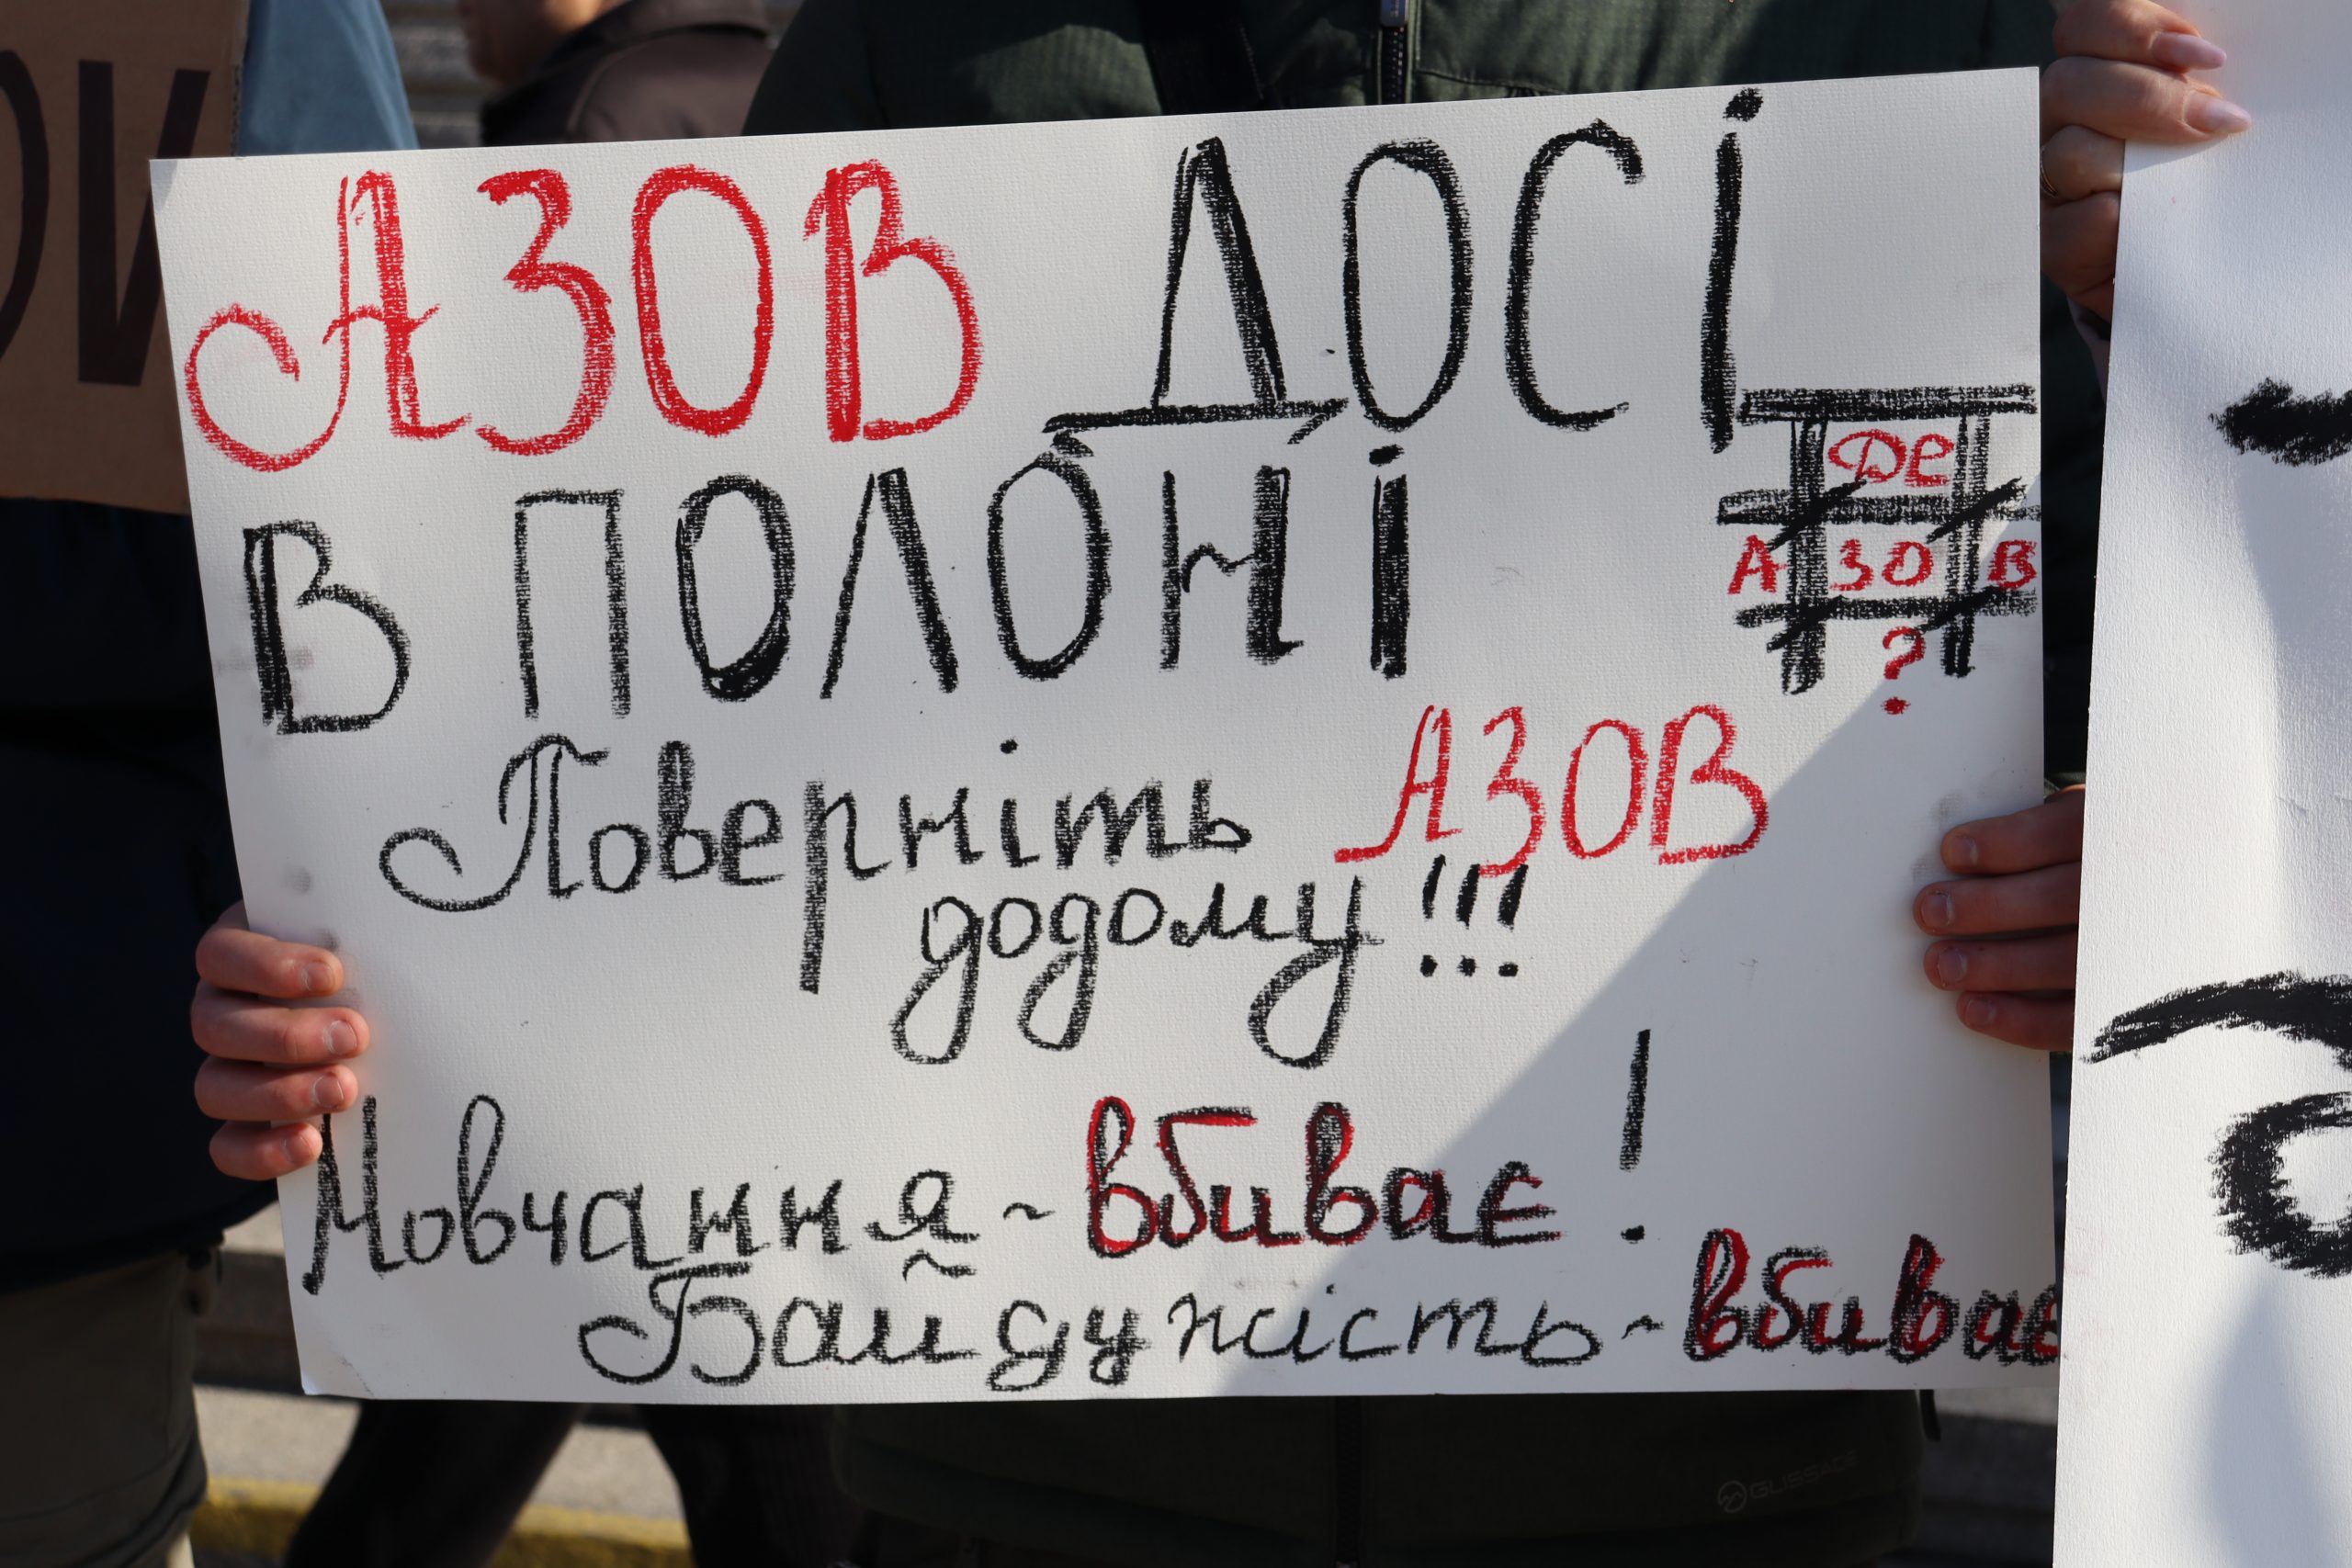 АЗОВ ДОСІ
В ПОЛОНІ
ДЕ
АЗОВ
?
Поверніть АЗОВ
додому!!!
Мовчання - вбиває!
Байдужість - вбиває